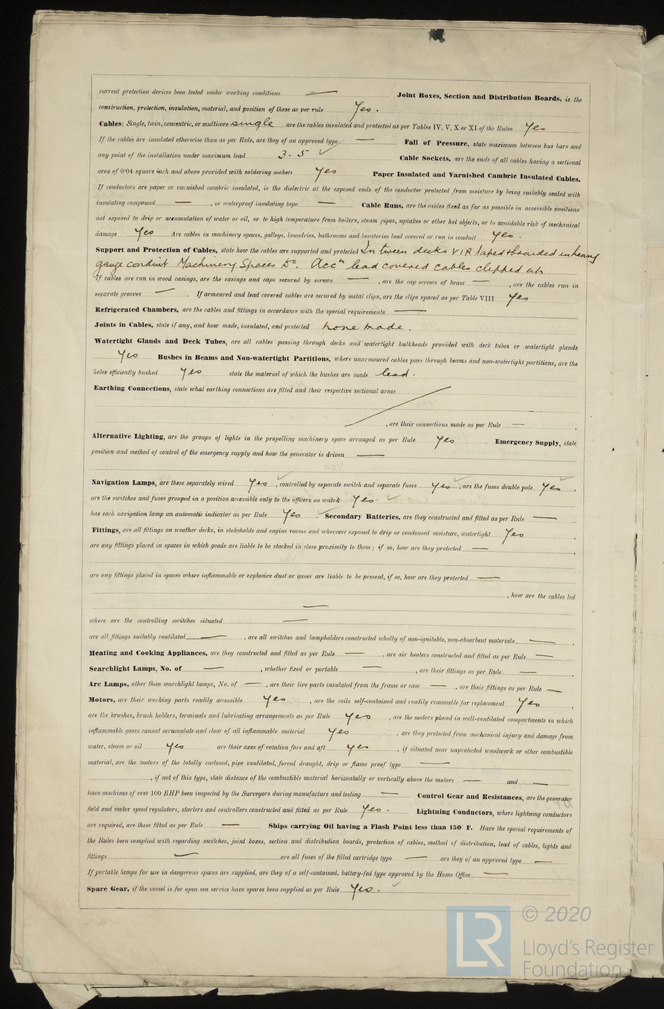 current protection devices been tested under working conditions — Joint Boxes, Section and Distribution Boards, is the
construction, protection, insulation, material, and position of these as per rule Yes.
Cables: Single, twin, concentric, or multicore single are the cables insulated and protected as per Tables IV, V, X or XI of the Rules Yes
If the cables are insulated otherwise than as per Rule, are they of an approved type — Fall of Pressure, state maximum between bus bars and
any point of the installation under maximum load 3.5 ✓ Cable Sockets, are the ends of all cables having a sectional
area of 0·04 square inch and above provided with soldering sockets Yes Paper Insulated and Varnished Cambric Insulated Cables.
If conductors are paper or varnished cambric insulated, is the dielectric at the exposed ends of the conductor protected from moisture by being suitably sealed with
insulating compound — , or waterproof insulating tape — Cable Runs, are the cables fixed as far as possible in accessible positions
not exposed to drip or accumulation of water or oil, or to high temperature from boilers, steam pipes, uptakes or other hot objects, or to avoidable risk of mechanical
damage Yes Are cables in machinery spaces, galleys, laundries, bathrooms and lavatories lead covered or run in conduit Yes.
Support and Protection of Cables, state how the cables are supported and protected In tween decks V I R taped & braided in heavy
gauge conduit Machinery Spaces Do. Accn lead covered cables clipped up
If cables are run in wood casings, are the casings and caps secured by screws — , are the cap screws of brass — , are the cables run in
separate grooves — . If armoured and lead covered cables are secured by metal clips, are the clips spaced as per Table VIII Yes
Refrigerated Chambers, are the cables and fittings in accordance with the special requirements —
Joints in Cables, state if any, and how made, insulated, and protected none made.
Watertight Glands and Deck Tubes, are all cables passing through decks and watertight bulkheads provided with deck tubes or watertight glands
Yes Bushes in Beams and Non-watertight Partitions, where unarmoured cables pass through beams and non-watertight partitions, are the
holes efficiently bushed Yes state the material of which the bushes are made lead.
Earthing Connections, state what earthing connections are fitted and their respective sectional areas
, are their connections made as per Rule —
Alternative Lighting, are the groups of lights in the propelling machinery space arranged as per Rule Yes . Emergency Supply, state
position and method of control of the emergency supply and how the generator is driven —
Navigation Lamps, are these separately wired Yes , controlled by separate switch and separate fuses Yes , are the fuses double pole Yes ,
are the switches and fuses grouped in a position accessible only to the officers on watch Yes
has each navigation lamp an automatic indicator as per Rule Yes . Secondary Batteries, are they constructed and fitted as per Rule —
Fittings, are all fittings on weather decks, in stokeholds and engine rooms and wherever exposed to drip or condensed moisture, watertight Yes
are any fittings placed in spaces in which goods are liable to be stacked in close proximity to them; if so, how are they protected —
are any fittings placed in spaces where inflammable or explosive dust or gases are liable to be present, if so, how are they protected —
, how are the cables led
—
where are the controlling switches situated —
are all fittings suitably ventilated — , are all switches and lampholders constructed wholly of non-ignitable, non-absorbent materials —
Heating and Cooking Appliances, are they constructed and fitted as per Rule — , are air heaters constructed and fitted as per Rule —
Searchlight Lamps, No. of — , whether fixed or portable — , are their fittings as per Rule —
Arc Lamps, other than searchlight lamps, No. of — , are their live parts insulated from the frame or case — , are their fittings as per Rule —
Motors, are their working parts readily accessible Yes , are the coils self-contained and readily removable for replacement Yes ,
are the brushes, brush holders, terminals and lubricating arrangements as per Rule Yes , are the motors placed in well-ventilated compartments in which
inflammable gases cannot accumulate and clear of all inflammable material Yes , are they protected from mechanical injury and damage from
water, steam or oil Yes are their axes of rotation fore and aft Yes , if situated near unprotected woodwork or other combustible
material, are the motors of the totally enclosed, pipe ventilated, forced draught, drip or flame proof type —
, if not of this type, state distance of the combustible material horizontally or vertically above the motors — and —
have machines of over 100 BHP been inspected by the Surveyors during manufacture and testing — Control Gear and Resistances, are the generator
field and motor speed regulators, starters and controllers constructed and fitted as per Rule Yes. Lightning Conductors, where lightning conductors
are required, are these fitted as per Rule — Ships carrying Oil having a Flash Point less than 150° F. Have the special requirements of
the Rules been complied with regarding switches, joint boxes, section and distribution boards, protection of cables, method of distribution, lead of cables, lights and
fittings — are all fuses of the filled cartridge type — are they of an approved type —
If portable lamps for use in dangerous spaces are supplied, are they of a self-contained, battery-fed type approved by the Home Office —
Spare Gear, if the vessel is for open sea service have spares been supplied as per Rule Yes.
© 2020
LR
Lloyd's Register
Foundation